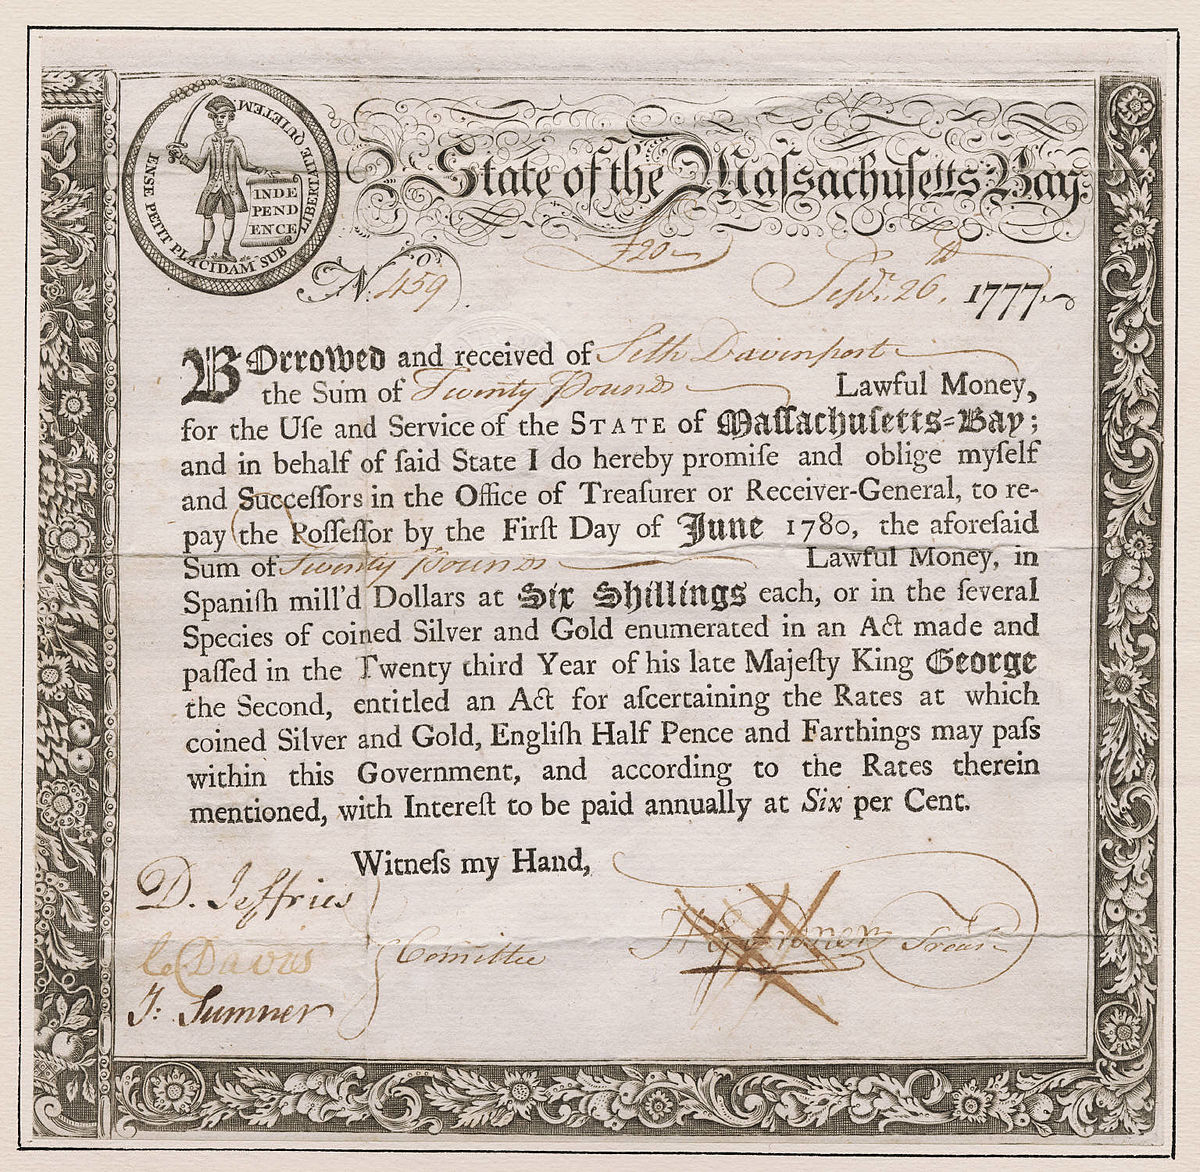 ENSE PETIT PLACIDAM SUB LIBERTATE QUIETEM
INDE
PEND
ENCE
State of the Maſsachuſetts Bay.
£20
No. 459
Sepr. 26th, 1777.
BOrrowed and received of Seth Davenport
the Sum of Twenty Pounds Lawful Money,
for the Uſe and Service of the STATE of Maſſachuſetts=Bay;
and in behalf of ſaid State I do hereby promiſe and oblige myſelf
and Succeſſors in the Office of Treaſurer or Receiver-General, to re-
pay the Poſſeſſor by the Firſt Day of June 1780, the aforeſaid
Sum of Twenty Pounds Lawful Money, in
Spaniſh mill'd Dollars at Six Shillings each, or in the ſeveral
Species of coined Silver and Gold enumerated in an Act made and
paſſed in the Twenty third Year of his late Majeſty King George
the Second, entitled an Act for aſcertaining the Rates at which
coined Silver and Gold, Engliſh Half Pence and Farthings may paſs
within this Government, and according to the Rates therein
mentioned, with Intereſt to be paid annually at Six per Cent.
Witneſs my Hand,
D. Jeffries
H Gardner Treasr.
C Davis Comittee
J: Sumner